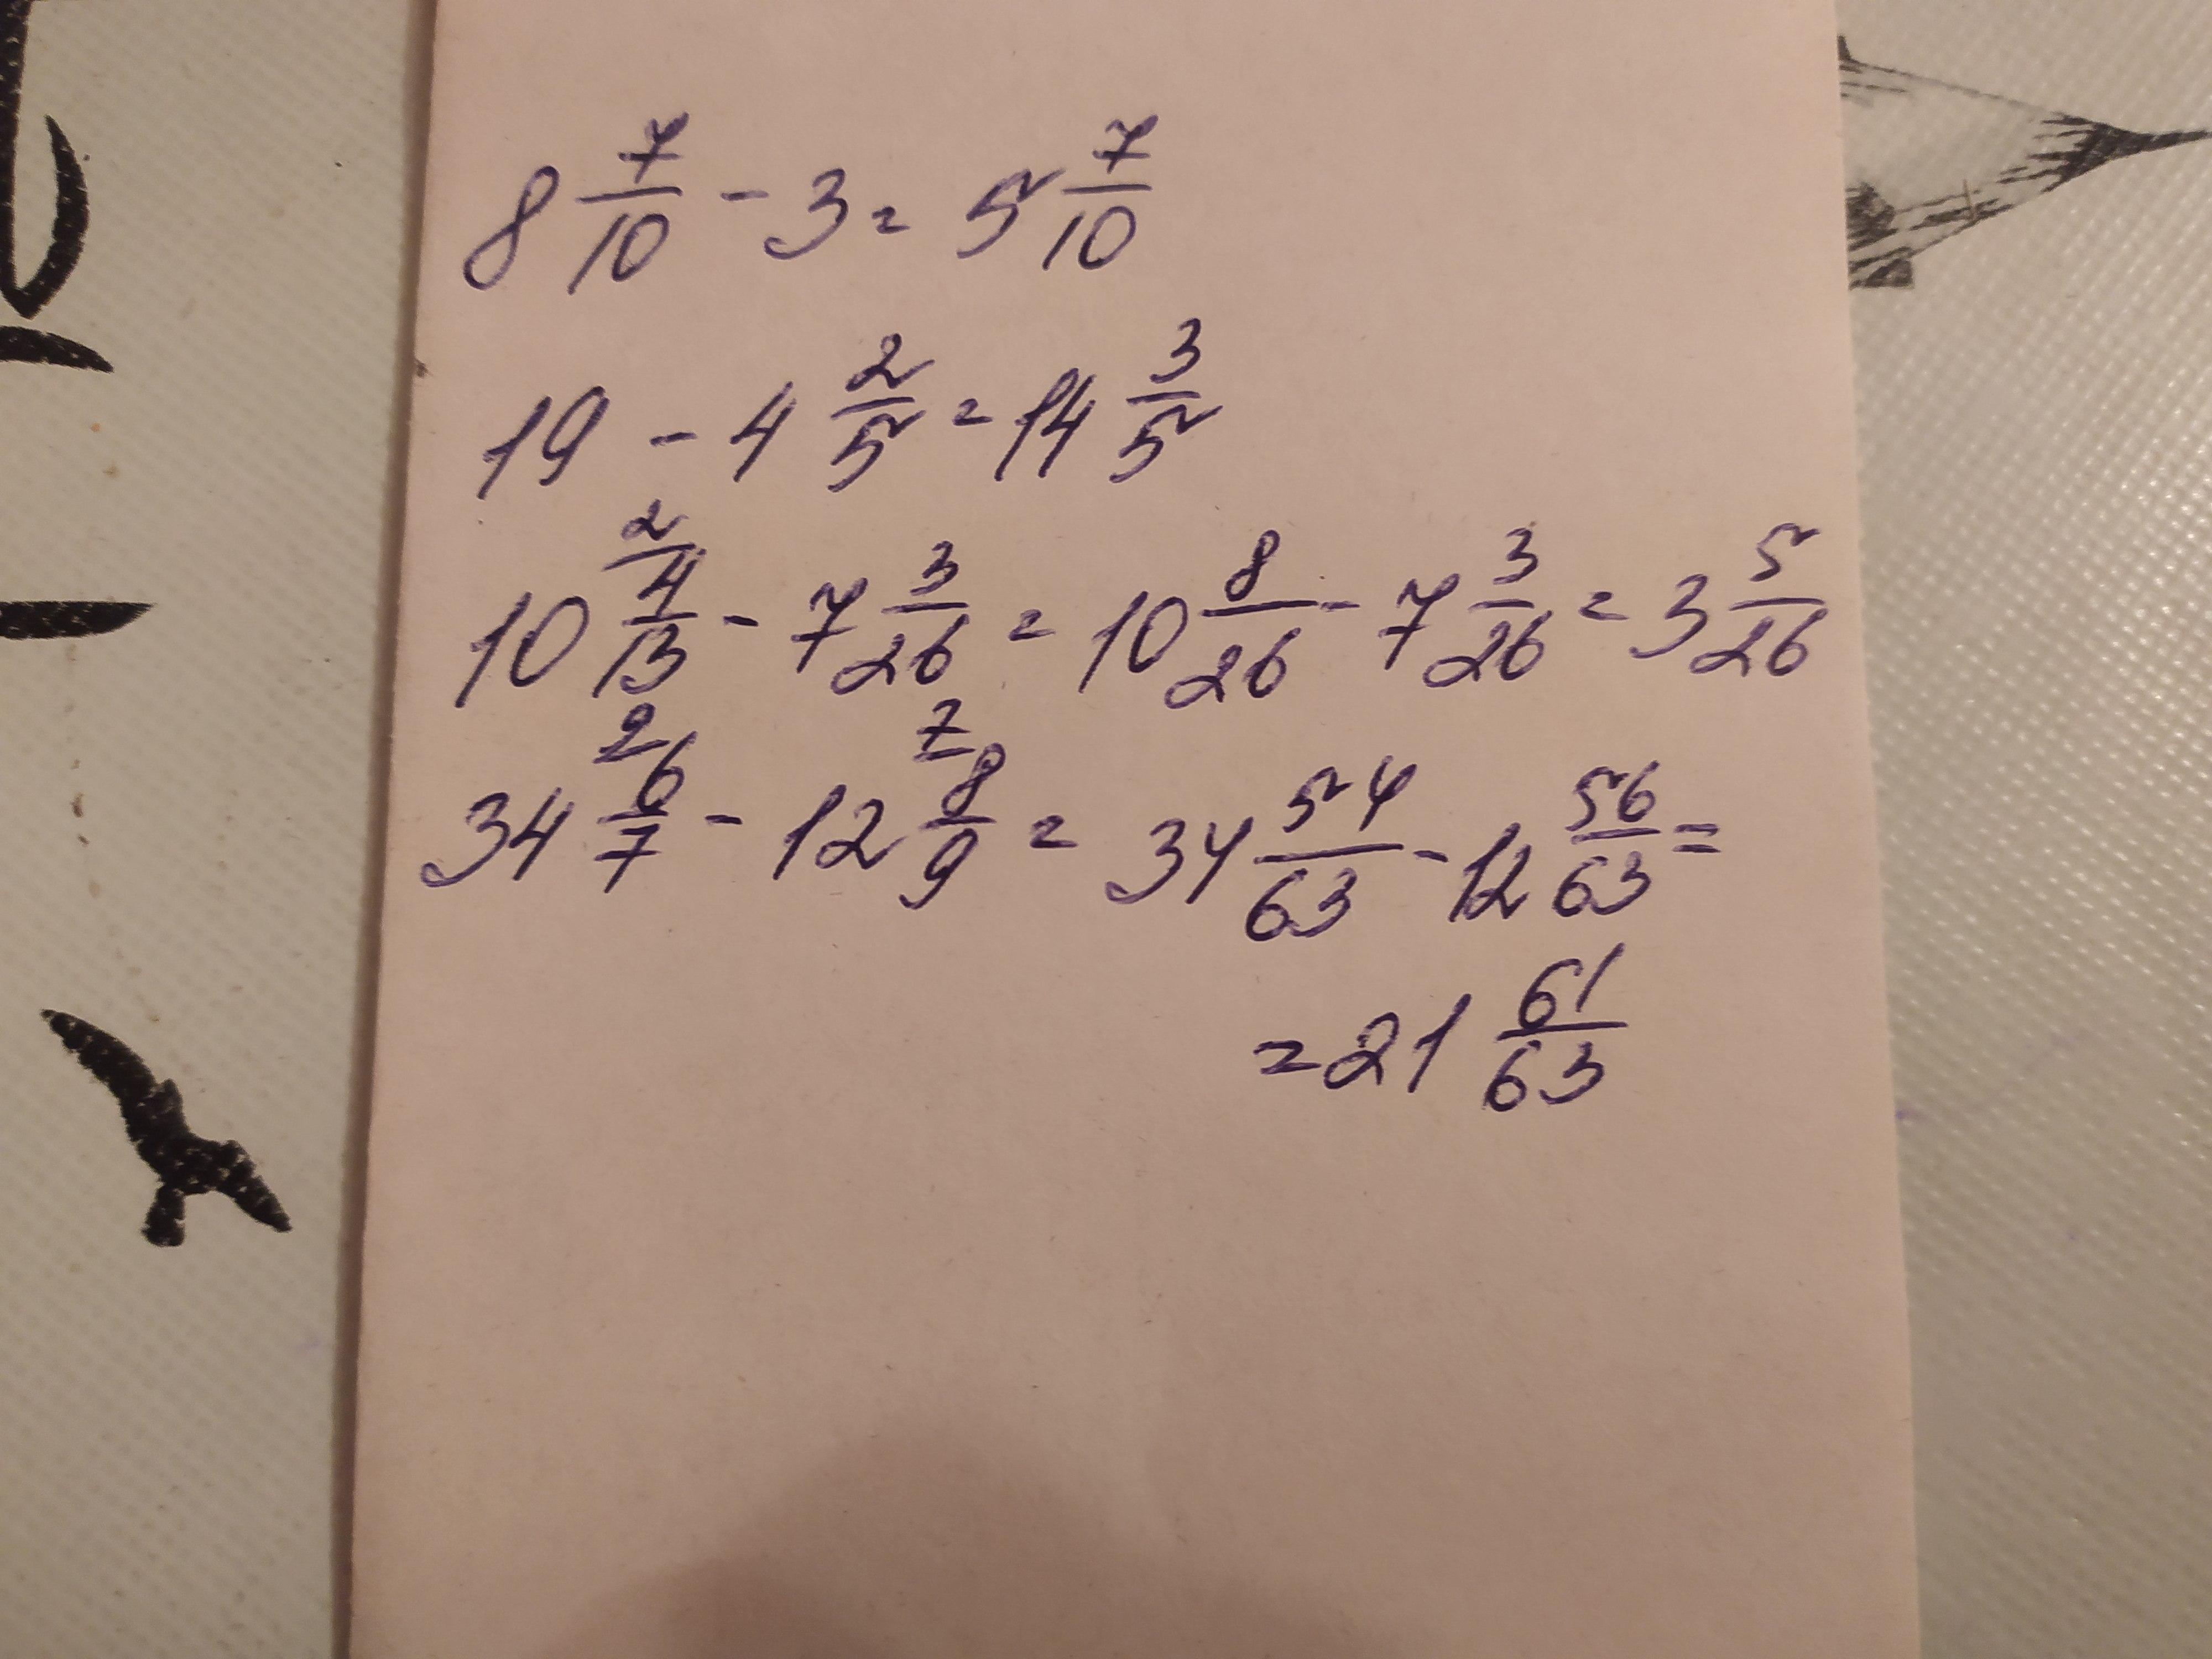 8 7/10 - 3 = 5 7/10
19 - 4 2/5 = 14 3/5
10 2/ 4/13 - 7 3/26 = 10 8/26 - 7 3/26 = 3 5/26
34 9/ 6/7 - 12 7/ 8/9 = 34 54/63 - 12 56/63 =
= 21 61/63